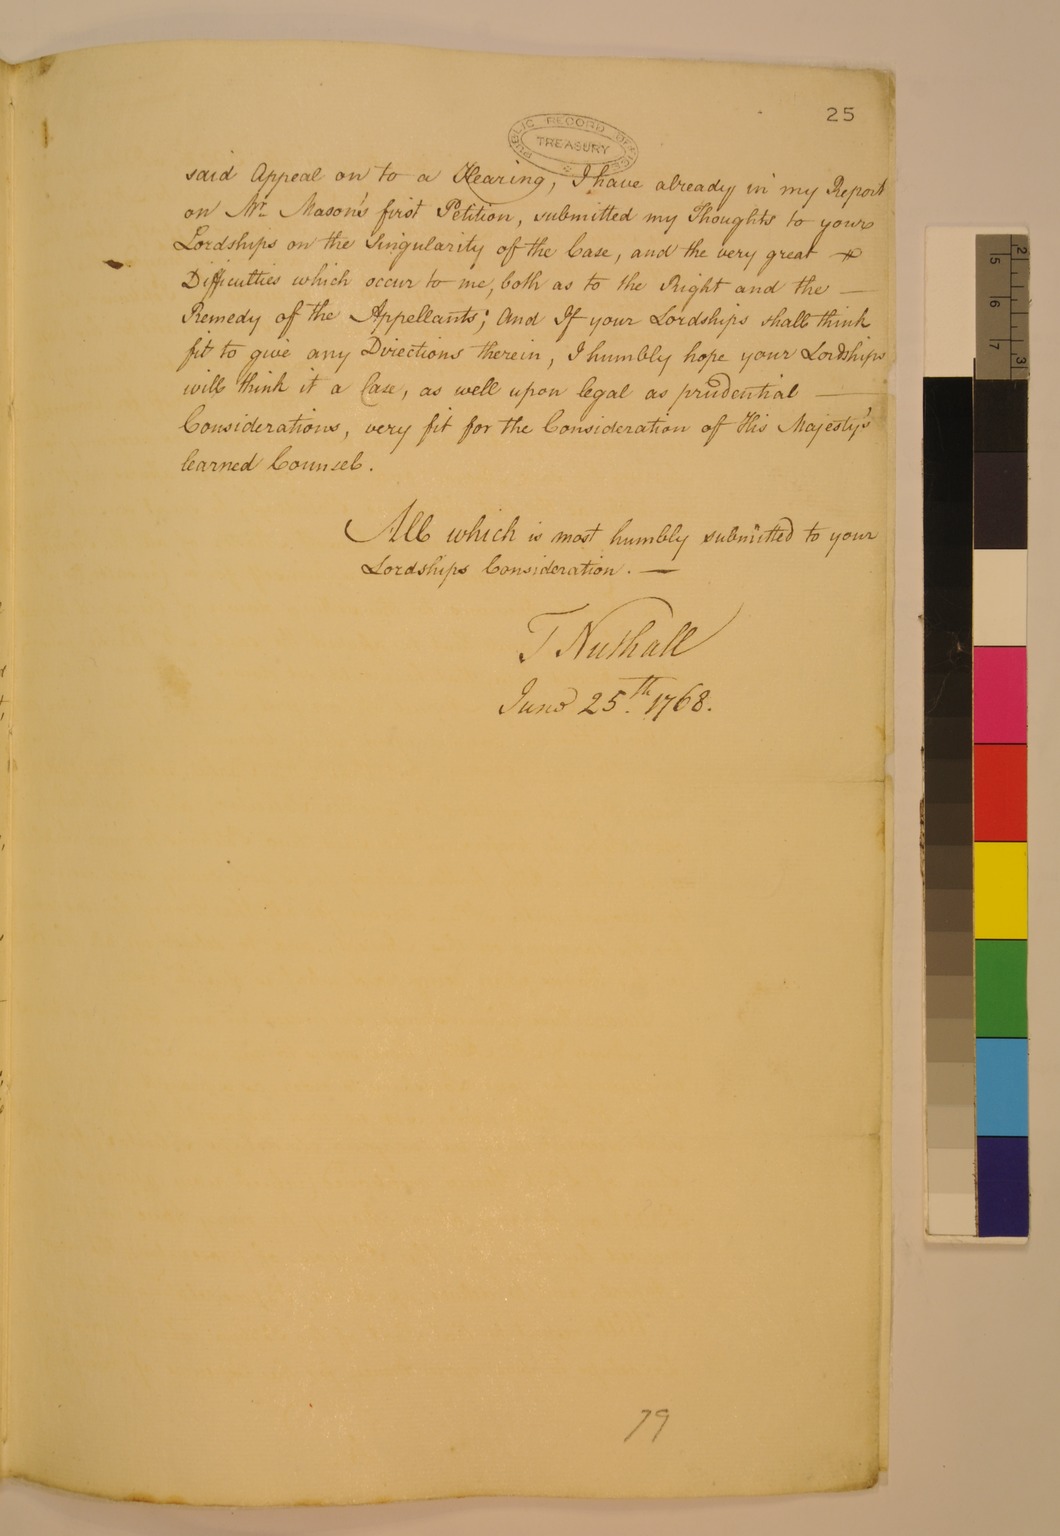 25
PUBLIC RECORD OFFICE
TREASURY
said Appeal on to a Hearing, I have already in my Report
on Mr. Mason's first Petition, submitted my Thoughts to your
Lordships on the Singularity of the Case, and the very great
Difficulties which occur to me, both as to the Right and the —
Remedy of the Appellants; And If your Lordships shall think
fit to give any Directions therein, I humbly hope your Lordships
will think it a Case, as well upon legal as prudential —
Considerations, very fit for the Consideration of His Majesty's
learned Counsel.
All which is most humbly submitted to your
Lordships Consideration. —
T Nuthall
June 25th. 1768.
79
2
3
5
6
7